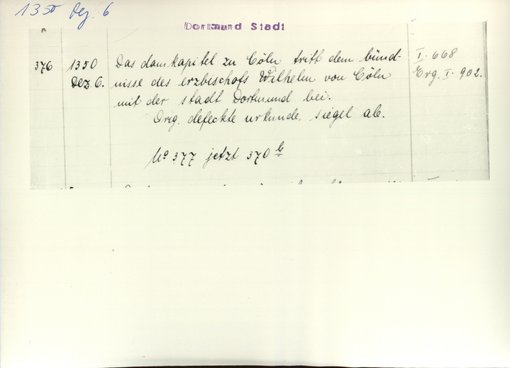 1350 Dez. 6
Dortmund Stadt
376 1350 Das domkapitel zu Cöln tritt dem bünd- I. 668
Dez. 6. nisse des erzbischofs Wilhelm von Cöln Erg. I. 902.
mit der stadt Dortmund bei.
Orig. defekte urkunde, siegel ab.
No 377 jetzt 370 b